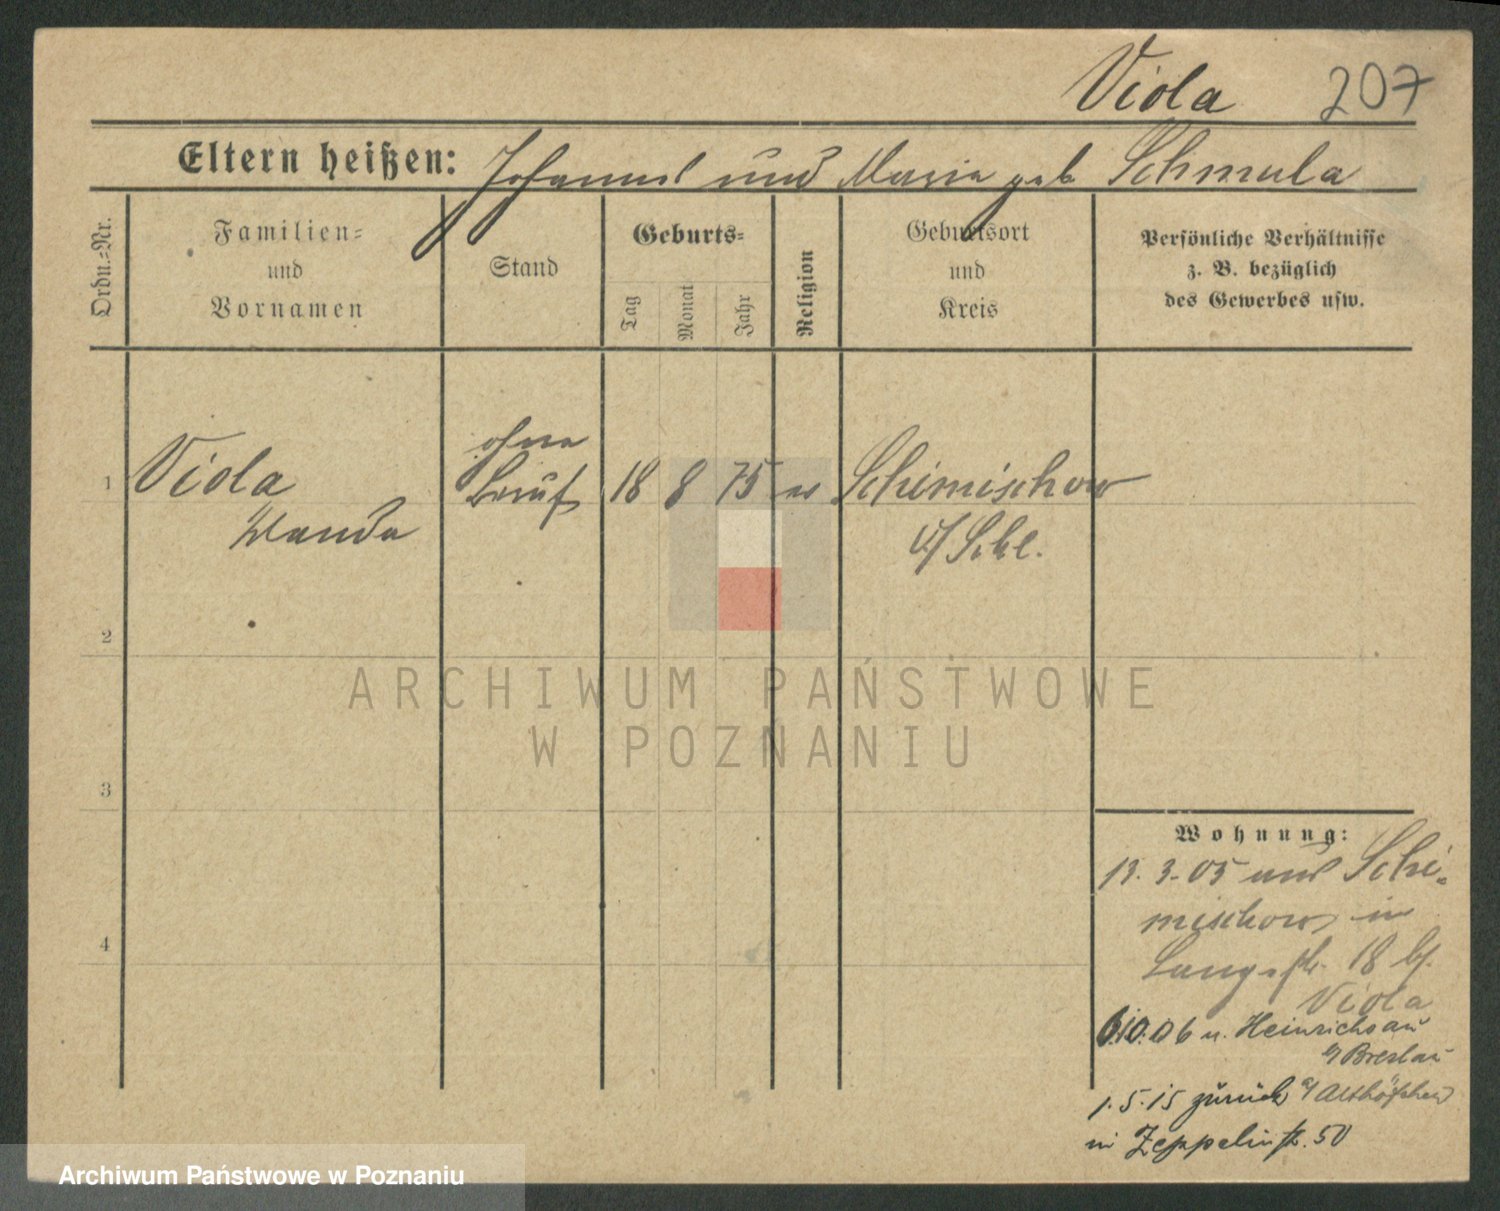 Viola 207
Eltern heißen: Johann und Maria geb Schmula
Ordn.-Nr.
Familien-
und
Vornamen
Stand
Geburts-
Tag
Monat
Jahr
Religion
Geburtsort
und
Kreis
Persönliche Verhältnisse
z. B. bezüglich
des Gewerbes usw.
1 Viola ohne Beruf 18 8 75 Schimischow
Wanda
O/Schl.
2
3
4
Wohnung:
3.05 aus Schi-
mischow, in
Langestr. 18 bf.
Viola
6.10.06 n. Heinrichsau
Breslau
1.5.15 zurück a/ Althöfchen
in Zeppelinstr. 50
ARCHIWUM PAŃSTWOWE
W POZNANIU
Archiwum Państwowe w Poznaniu